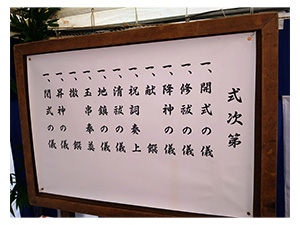 式次第
一、開式の儀
一、修祓の儀
一、降神の儀
一、献饌
一、祝詞奏上
一、清祓の儀
一、地鎮の儀
一、玉串奉奠
一、撤饌
一、昇神の儀
一、閉式の儀